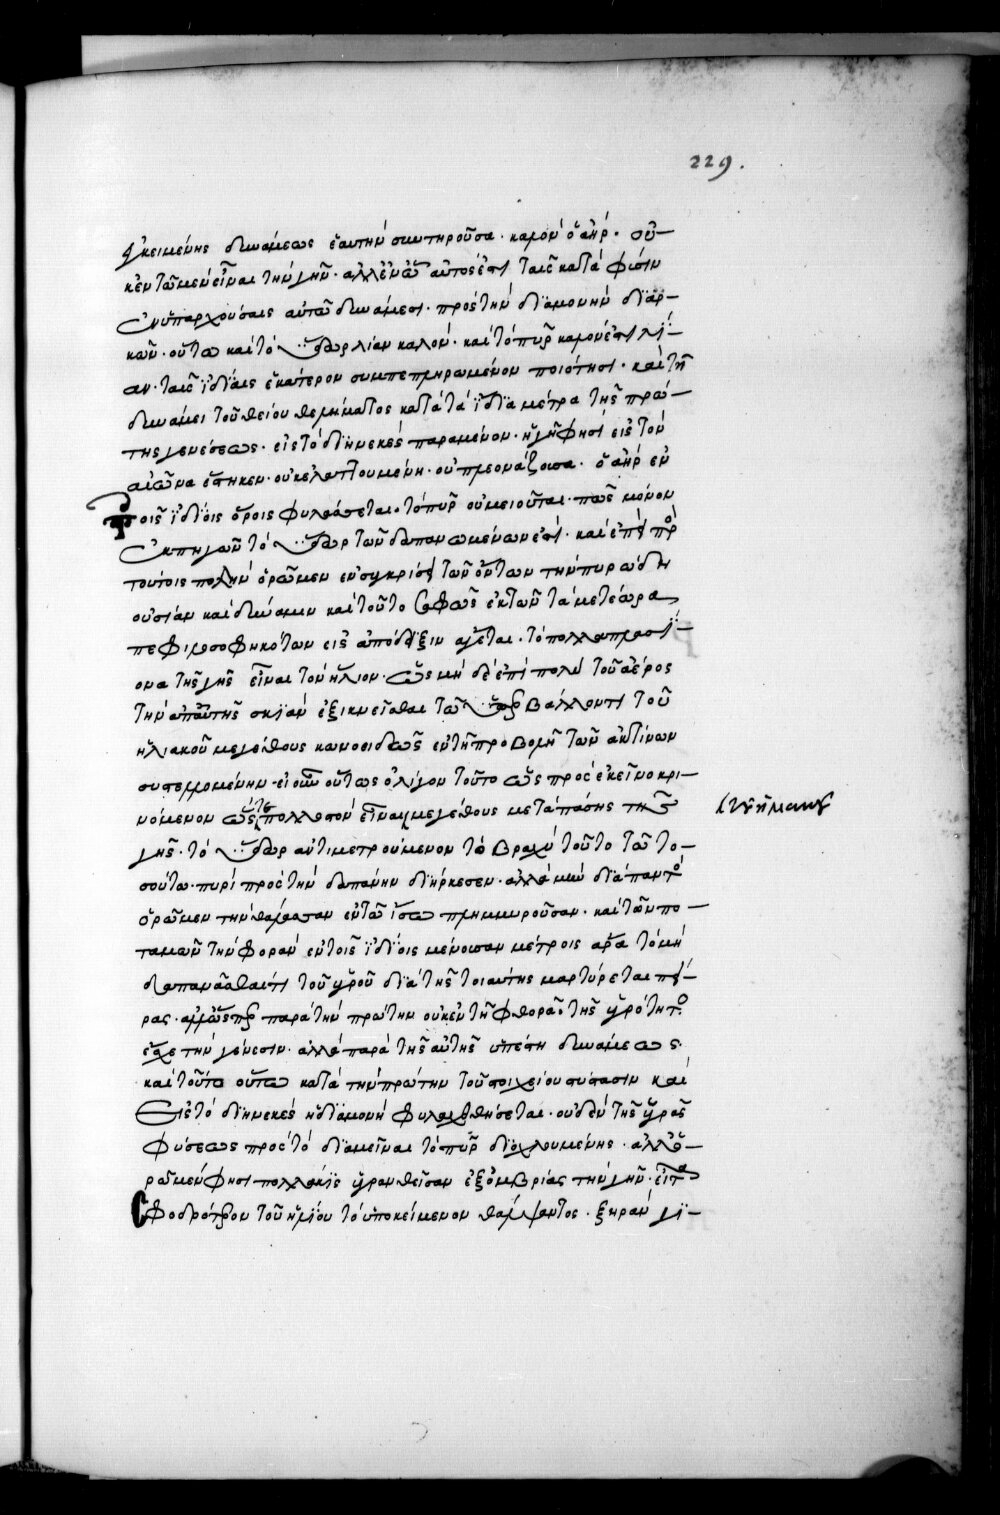 229.
ἐγκειμένης δυνάμεως ἑαυτὴν συντηροῦσα· καλὸν ὁ ἀήρ· οὐ-
κ ἐν τῶ μὲν εἶναι τὴν γῆν· ἀλλ' ἐν ὧ αὐτός ἐστι ταῖς κατὰ φύσιν
ἐνυπαρχούσαις αὐτῶ δυνάμεσι· πρὸς τὴν διαμονὴν διαρ-
κῶν· οὕτω καὶ τὸ ὕδωρ λίαν καλόν· καὶ τὸ πῦρ καλόν ἐστι λί-
αν· ταῖς ἰδίαις ἑκάτερον συμπεπληρωμένον ποιότησι· καὶ τῆ
δυνάμει τοῦ θείου θελήματος κατὰ τὰ ἴδια μέτρα τῆς πρώ-
της γενέσεως· εἰς τὸ διηνεκὲς παραμένον· ἡ γῆ φησὶ εἰς τὸν
αἰῶνα ἕστηκεν· οὐκ ἐλαττουμένη· οὐ πλεονάζουσα· ὁ ἀὴρ ἐν
τοῖς ἰδίοις ὅροις φυλάσσεται· τὸ πῦρ οὐ μειοῦται· πῶς μόνον
ἐκ πηγῶν τὸ ὕδωρ τῶν δαπανωμένων ἐστί· καὶ ἐπὶ πρ
τούτοις πολλὴν ὁρῶμεν ἐν συγκρίσει τῶν ὄντων τὴν πυρώδη
οὐσίαν καὶ δύναμιν καὶ τοῦτο σαφῶς ἐκ τῶν τὰ μετέωρα
πεφιλοσοφηκότων εἰς ἀπόδειξιν ἄγεται· τὸ πολλαπλασί-
ονα τῆς γῆς εἶναι τὸν ἥλιον· ὡς μὴ δὲ ἐπὶ πολὺ τοῦ ἀέρος
τὴν ἀπ' αὐτῆς σκιὰν ἐξικνεῖσθαι τῶ ὑπερβάλλοντι τοῦ
ἡλιακοῦ μεγέθους κωνοειδῶς ἐν τῆ προβολῆ τῶν ἀκτίνων
συστελλομένην· εἰ οὖν οὕτως ὀλίγον τοῦτο ὡς πρὸς ἐκεῖνο κρι-
νόμενον ὥστε πολλοστὸν εἶναι μεγέθους μετὰ πάσης τῆς
γῆς· τὸ ὕδωρ ἀντιμετρούμενον τὸ βραχὺ τοῦτο τῶ το-
σούτω πυρὶ πρὸς τὴν δαπάνην διήρκεσεν· ἀλλὰ μὴν διὰ παντὸς
ὁρῶμεν τὴν θάλασσαν ἐν τῶ ἴσω πλημμυροῦσαν· καὶ τῶν πο-
ταμῶν τὴν φορὰν ἐν τοῖς ἰδίοις μένουσαν μέτροις ἄρα τὸ μὴ
δαπανᾶσθαί τι τοῦ ὑγροῦ διὰ τῆς τοιαύτης μαρτύρεται πεί-
ρας· ἀλλ' ὥσπερ παρὰ τὴν πρώτην οὐκ ἐν τῆ φθορᾶ τῆς ὑγρότητος
ἔσχε τὴν γένεσιν· ἀλλὰ παρὰ τῆς αὐτῆς ὑπέστη δυνάμεως·
καὶ τοῦτο οὕτω κατὰ τὴν πρώτην τοῦ στοιχείου σύστασιν καὶ
εἰς τὸ διηνεκὲς ἡ διαμονὴ φυλαχθήσεται· οὐδὲν τῆς ὑγρᾶς
φύσεως πρὸς τὸ διαμεῖναι τὸ πῦρ διοχλουμένης· ἀλλ' ὁ-
ρῶμεν φησὶ πολλάκις ὑγρανθεῖσαν ἐξ ὀμβρίας τὴν γῆν· εἶτα
σφοδρότερον τοῦ ἡλίου τὸ ὑποκείμενον θάλψαντος· ξηρὰν γι-